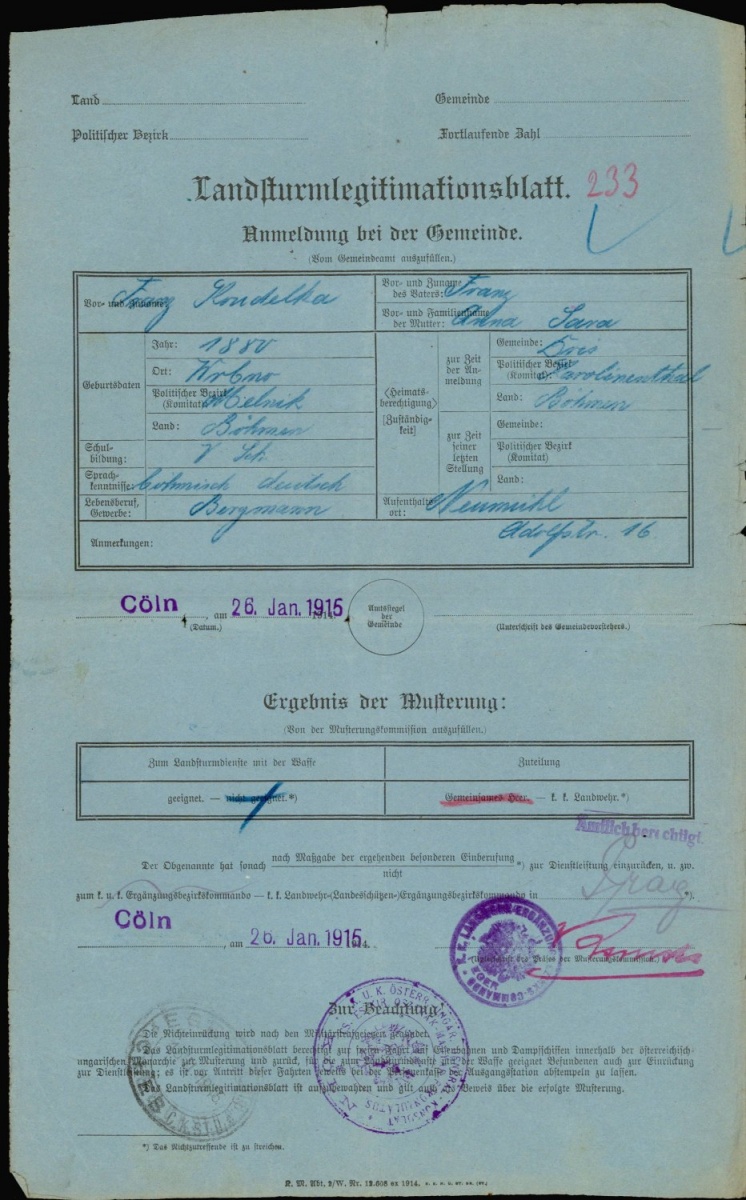 Land
Gemeinde
Politischer Bezirk
Fortlaufende Zahl
Landsturmlegitimationsblatt. 233
Anmeldung bei der Gemeinde.
(Vom Gemeindeamt auszufüllen.)
Vor- und Zuname: Franz Koudelka
Vor- und Zuname des Vaters: Franz
Vor- und Familienname der Mutter: Anna Sara
Geburtsdaten
Jahr: 1880
Ort: Wrbno
Politischer Bezirk (Komitat): Melnik
Land: Böhmen
Schulbildung: V Sch
Sprachkenntnisse: böhmisch deutsch
Lebensberuf, Gewerbe: Bergmann
(Heimatsberechtigung)
[Zuständigkeit]
zur Zeit der Anmeldung
Gemeinde:
Politischer Bezirk (Komitat): Karolinenthal
Land: Böhmen
zur Zeit seiner letzten Stellung
Gemeinde:
Politischer Bezirk (Komitat)
Land:
Aufenthaltsort: Neumühl
Adolfstr. 16
Anmerkungen:
Cöln, am 26. Jan. 1915
(Datum.)
Amtssiegel der Gemeinde
(Unterschrift des Gemeindevorstehers.)
Ergebnis der Musterung:
(Von der Musterungskommission auszufüllen.)
Zum Landsturmdienste mit der Waffe
Zuteilung
geeignet. — nicht geeignet.*)
Gemeinsames Heer. — k. k. Landwehr.*)
Der Obgenannte hat sonach nach Maßgabe der ergehenden besonderen Einberufung / nicht *) zur Dienstleistung einzurücken, u. zw.
zum k. u. k. Ergänzungsbezirkskommando — k. k. Landwehr-(Landesschützen-)Ergänzungsbezirkskommando in Prag *).
Cöln, am 26. Jan. 1915
(Unterschrift des Präses der Musterungskommission.)
EGER
Zur Beachtung!
Die Nichteinrückung wird nach den Militärstrafgesetzen geahndet.
Das Landsturmlegitimationsblatt berechtigt zur freien Fahrt auf Eisenbahnen und Dampfschiffen innerhalb der österreichisch-
ungarischen Monarchie zur Musterung und zurück, für zum Landsturmdienste mit der Waffe geeignet Befundenen auch zur Einrückung
zur Dienstleistung; es ist vor Antritt dieser Fahrten jeweils bei der Personenkasse der Ausgangsstation abstempeln zu lassen.
Das Landsturmlegitimationsblatt ist aufzubewahren und gilt auch als Beweis über die erfolgte Musterung.
*) Das Nichtzutreffende ist zu streichen.